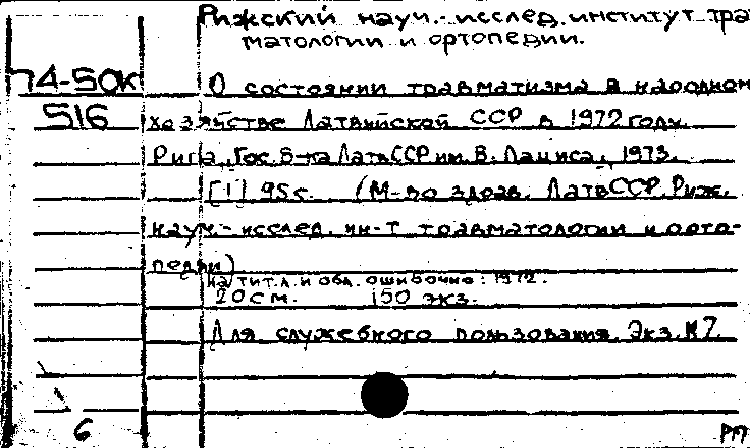 Рижский науч.-исслед. институт тра
матологии и ортопедии.
74-50к
516
О состоянии травматизма в народном
хозяйстве Латвийской ССР в 1972 году.
Рига, Гос. б-ка ЛатвССР им. В. Лациса, 1973.
[1] 95 с. (М-во здрав. ЛатвССР. Риж.
науч.-исслед. ин-т травматологии и орто-
педии)
На тит. л. и обл. ошибочно: 1972.
20 см. 150 экз.
Для служебного пользования. Экз. №7.
6
РП